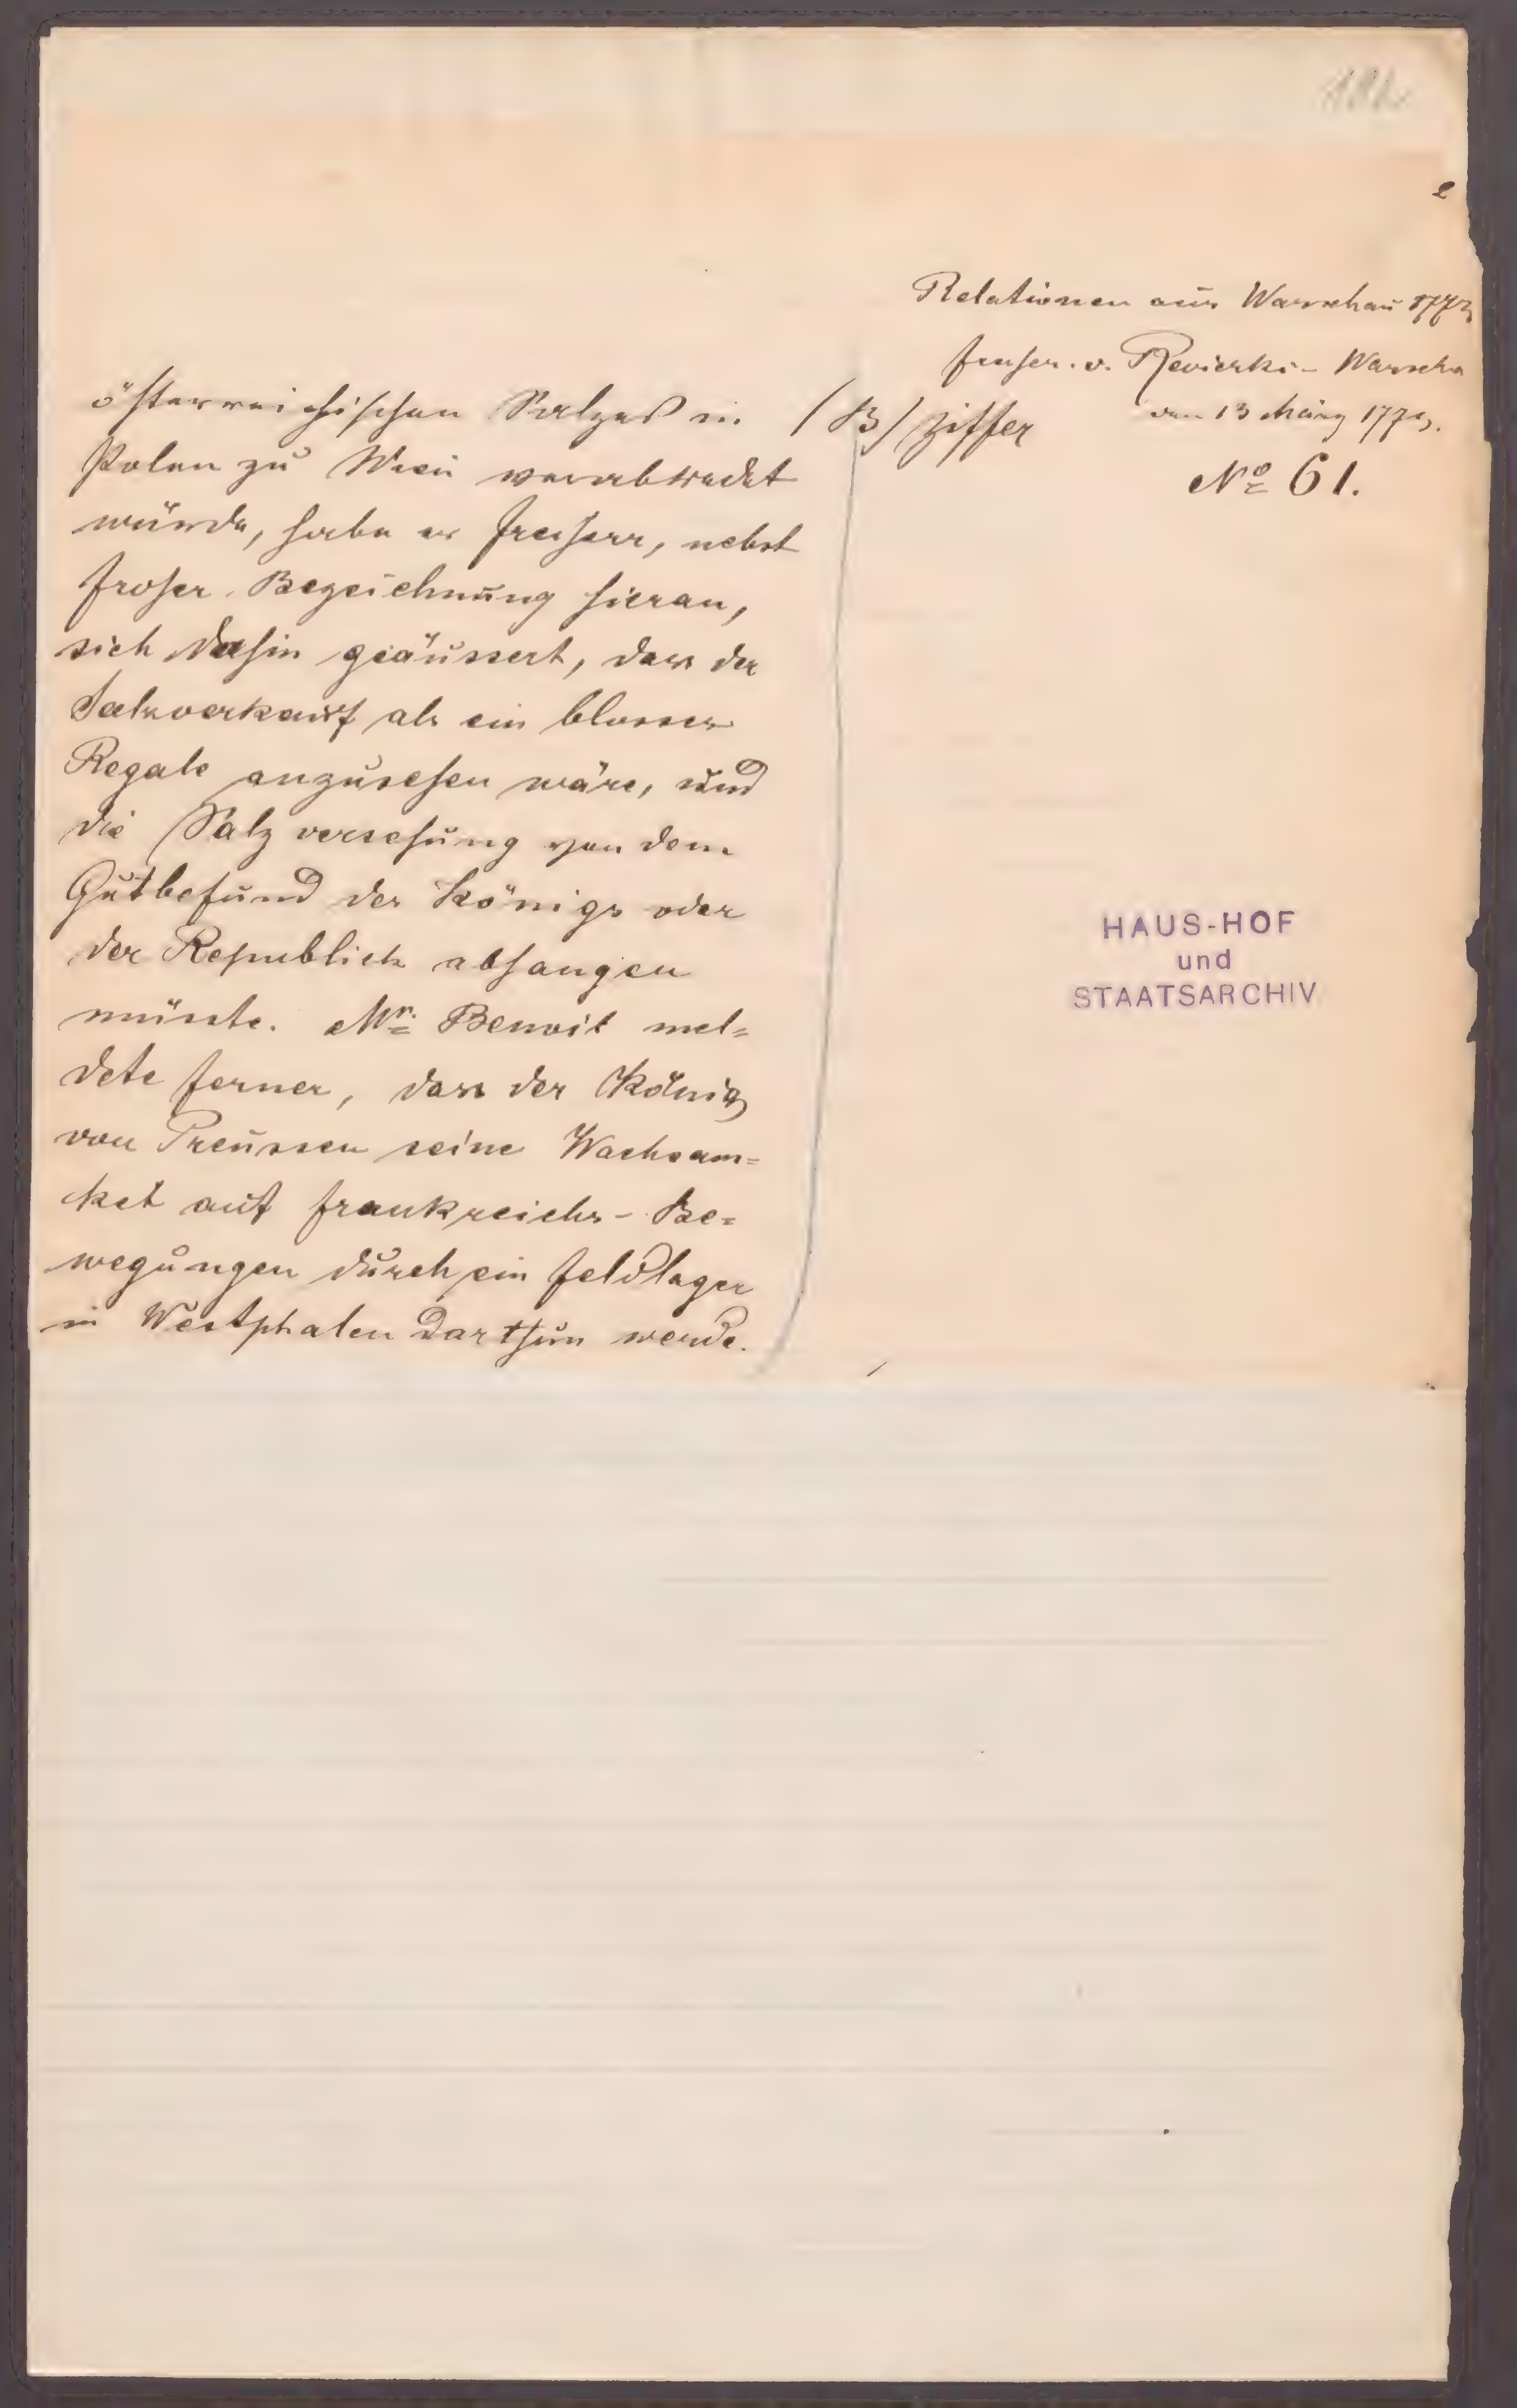 2
Relationen aus Warschau 1773
Freiher. v. Revicrki - Warscha
von 13 März 1773.
No 61.
(B) Ziffer
österreichischen Salzes in
Polen zu Wien verabredet
würde, habe er Freiherr, nebst
froher Bezeichnung hieran,
sich dahin geäussert, dass der
Salzverkauf als ein blosses
Regale anzusehen wäre, und
die Salz versehung von dem
Gutbefund des Königs oder
der Republick abhangen
müsste. Mr. Benoit mel=
dete ferner, dass der König
von Preussen seine Wachsam=
keit auf Frankreichs - Be=
wegungen durch ein Feldlager
in Westphalen darthun werde.
HAUS-HOF
und
STAATSARCHIV